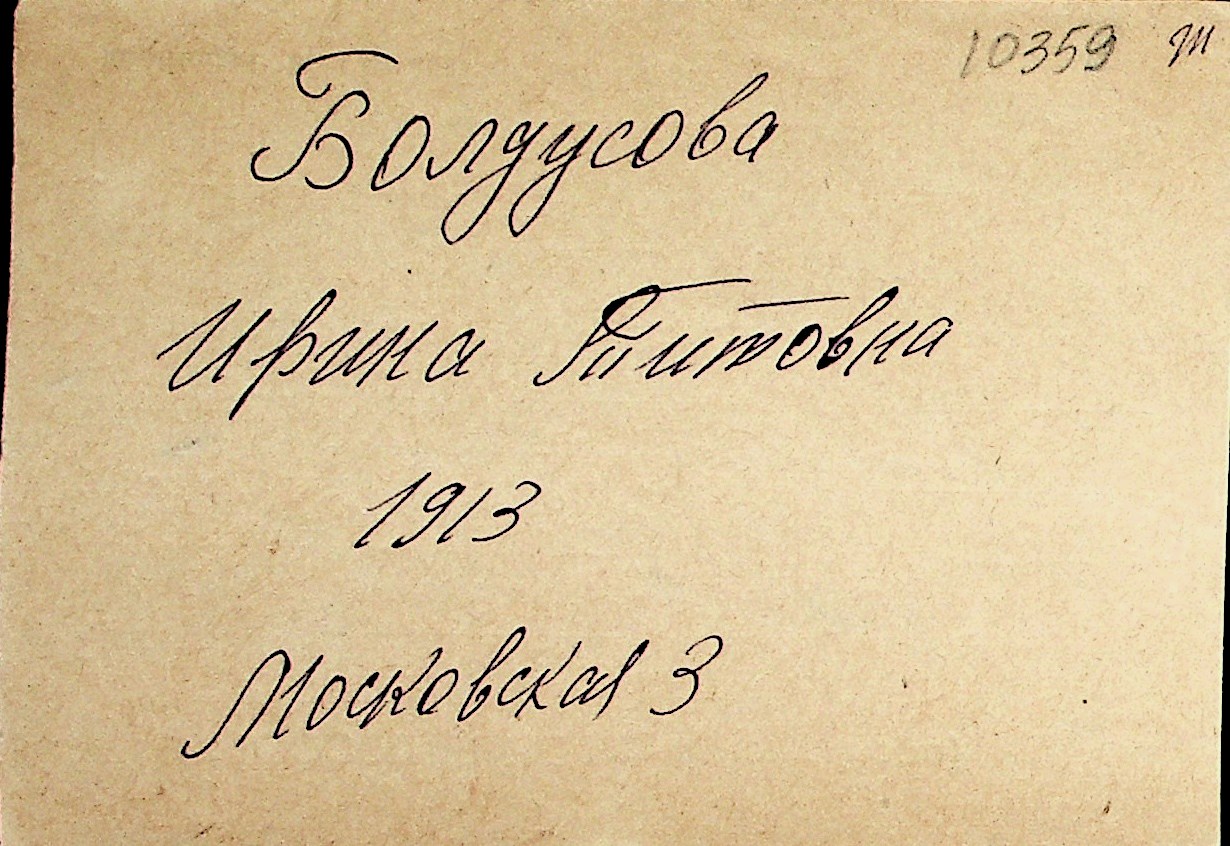 10359 т
Болдусова
Ирина Титовна
1913
Московская 3